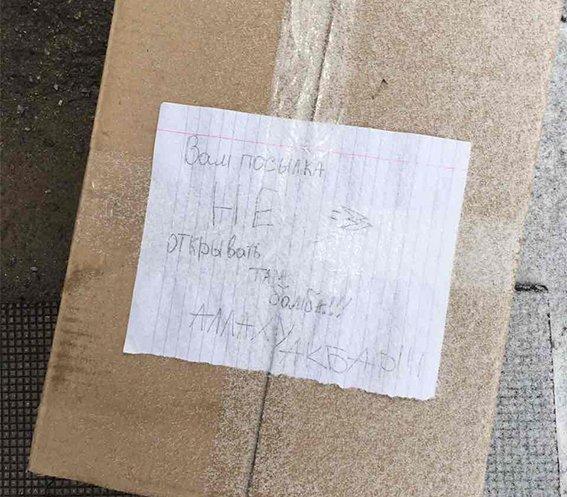 Вам посылка
НЕ =>>
открывать
там
бомба!!!
АЛЛАХ АКБАР!!!